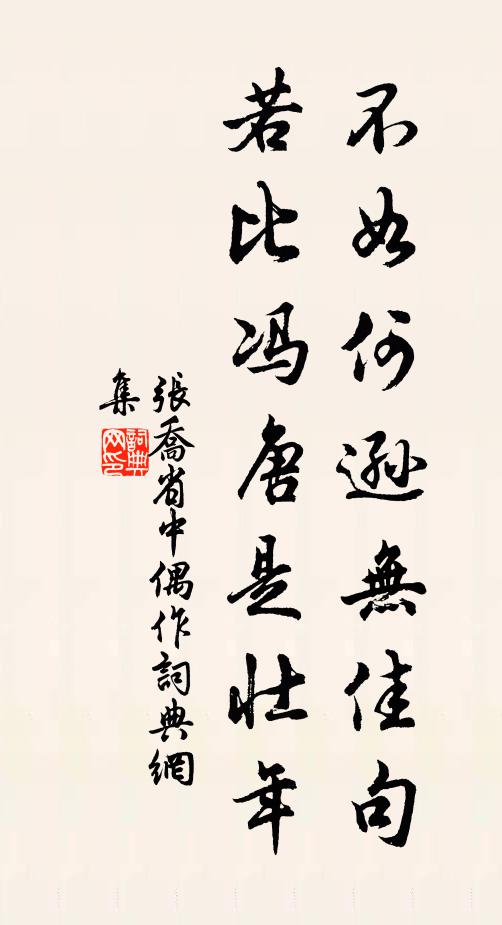 不如何遜無佳句
若比冯唐是壮年
張喬省中偶作詞典網
集
詞典
网印